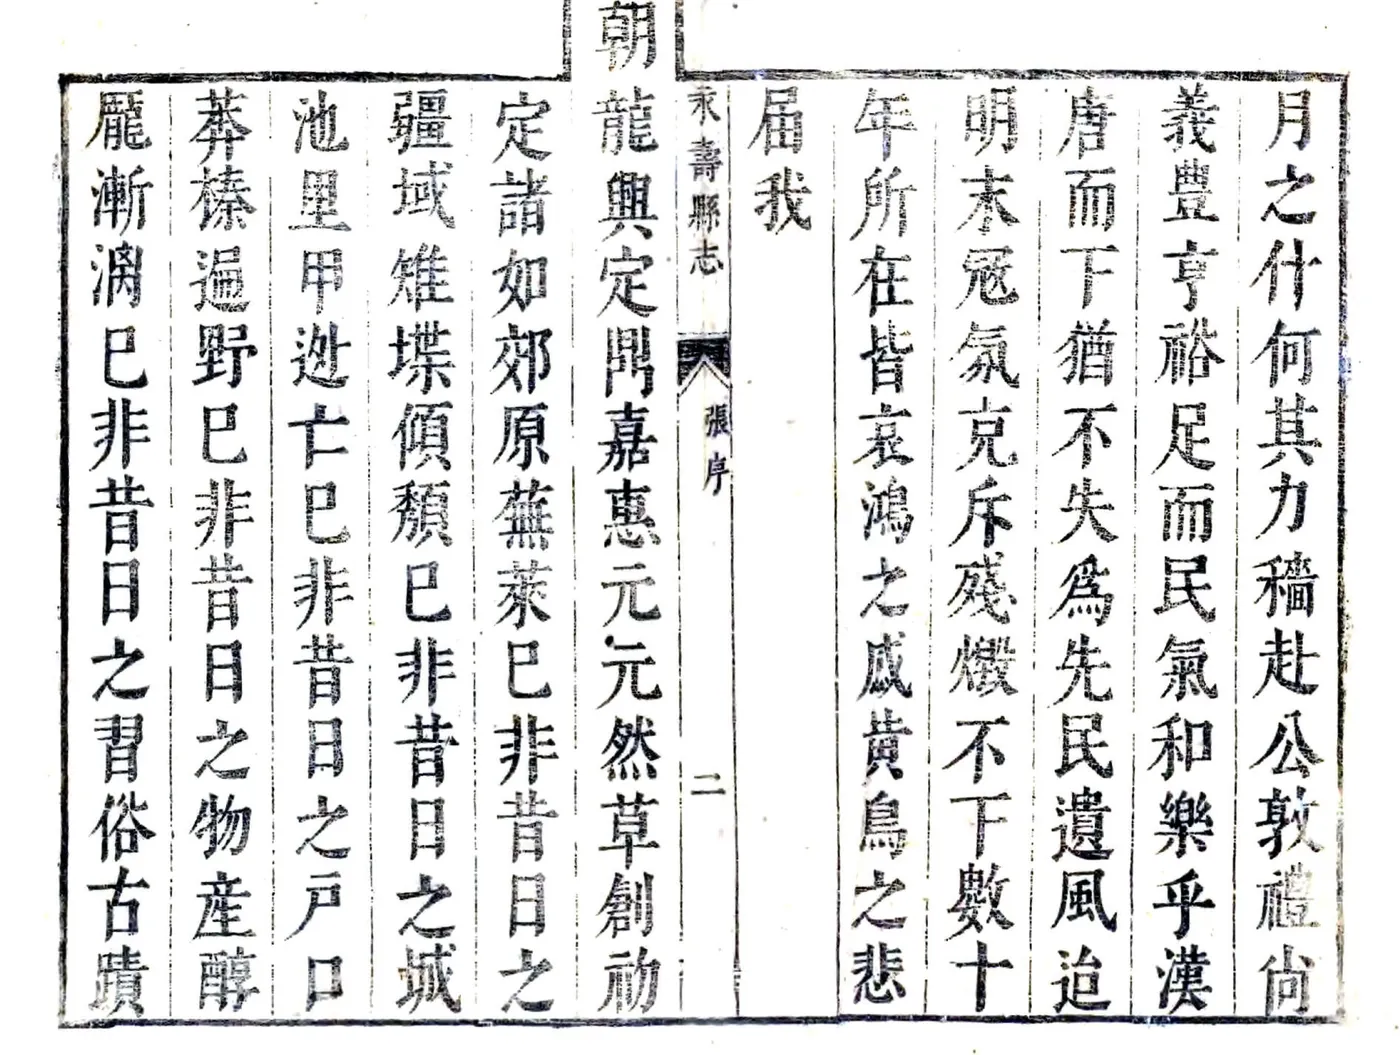 月之什何其力穡赴公敦禮尚
義豐亨裕足而民氣和樂乎漢
唐而下猶不失爲先民遺風迨
明末冦氛克斥殘燬不下數十
年所在皆哀鴻之感黄鳥之悲
届我
永壽縣志
張序
二
朝
龍興定鼎嘉惠元元然草創初
定諸如郊原蕪萊巳非昔日之
疆域雉堞傾頽巳非昔日之城
池里甲迯亡巳非昔日之戸口
莽榛遍野巳非昔日之物産醇
厖漸漓巳非昔日之習俗古蹟